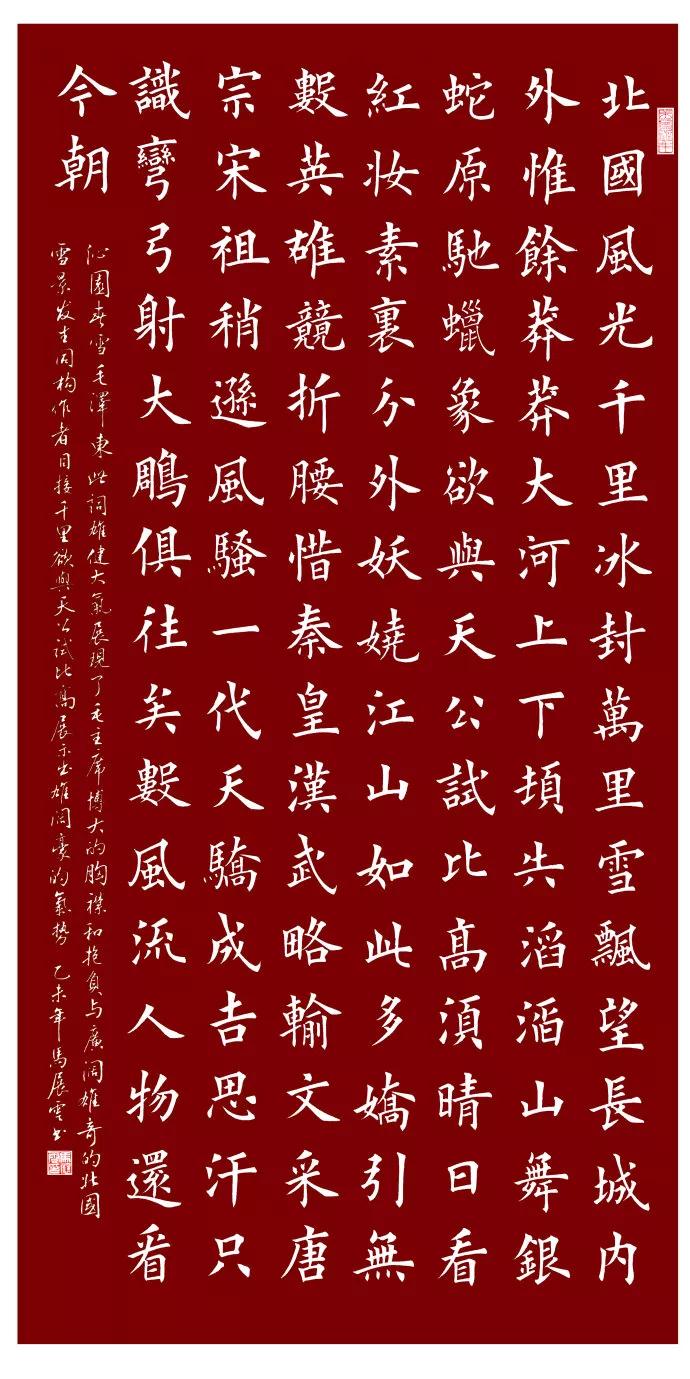 北國風光千里冰封萬里雪飄望長城内
外惟餘莽莽大河上下頓失滔滔山舞銀
蛇原馳蠟象欲與天公試比髙須晴日看
紅妆素裏分外妖嬈江山如此多嬌引無
數英雄競折腰惜秦皇漢武略輸文采唐
宗宋祖稍遜風騷一代天驕成吉思汗只
識彎弓射大鵰俱往矣數風流人物還看
今朝
沁園春雪毛澤東此詞雄健大氣展現了毛主席博大的胸襟和抱負与廣阔雄奇的北國
雪景发生同构作者目接千里欲與天公试比髙展示出雄阔豪的氣势 乙未年馬展雲书